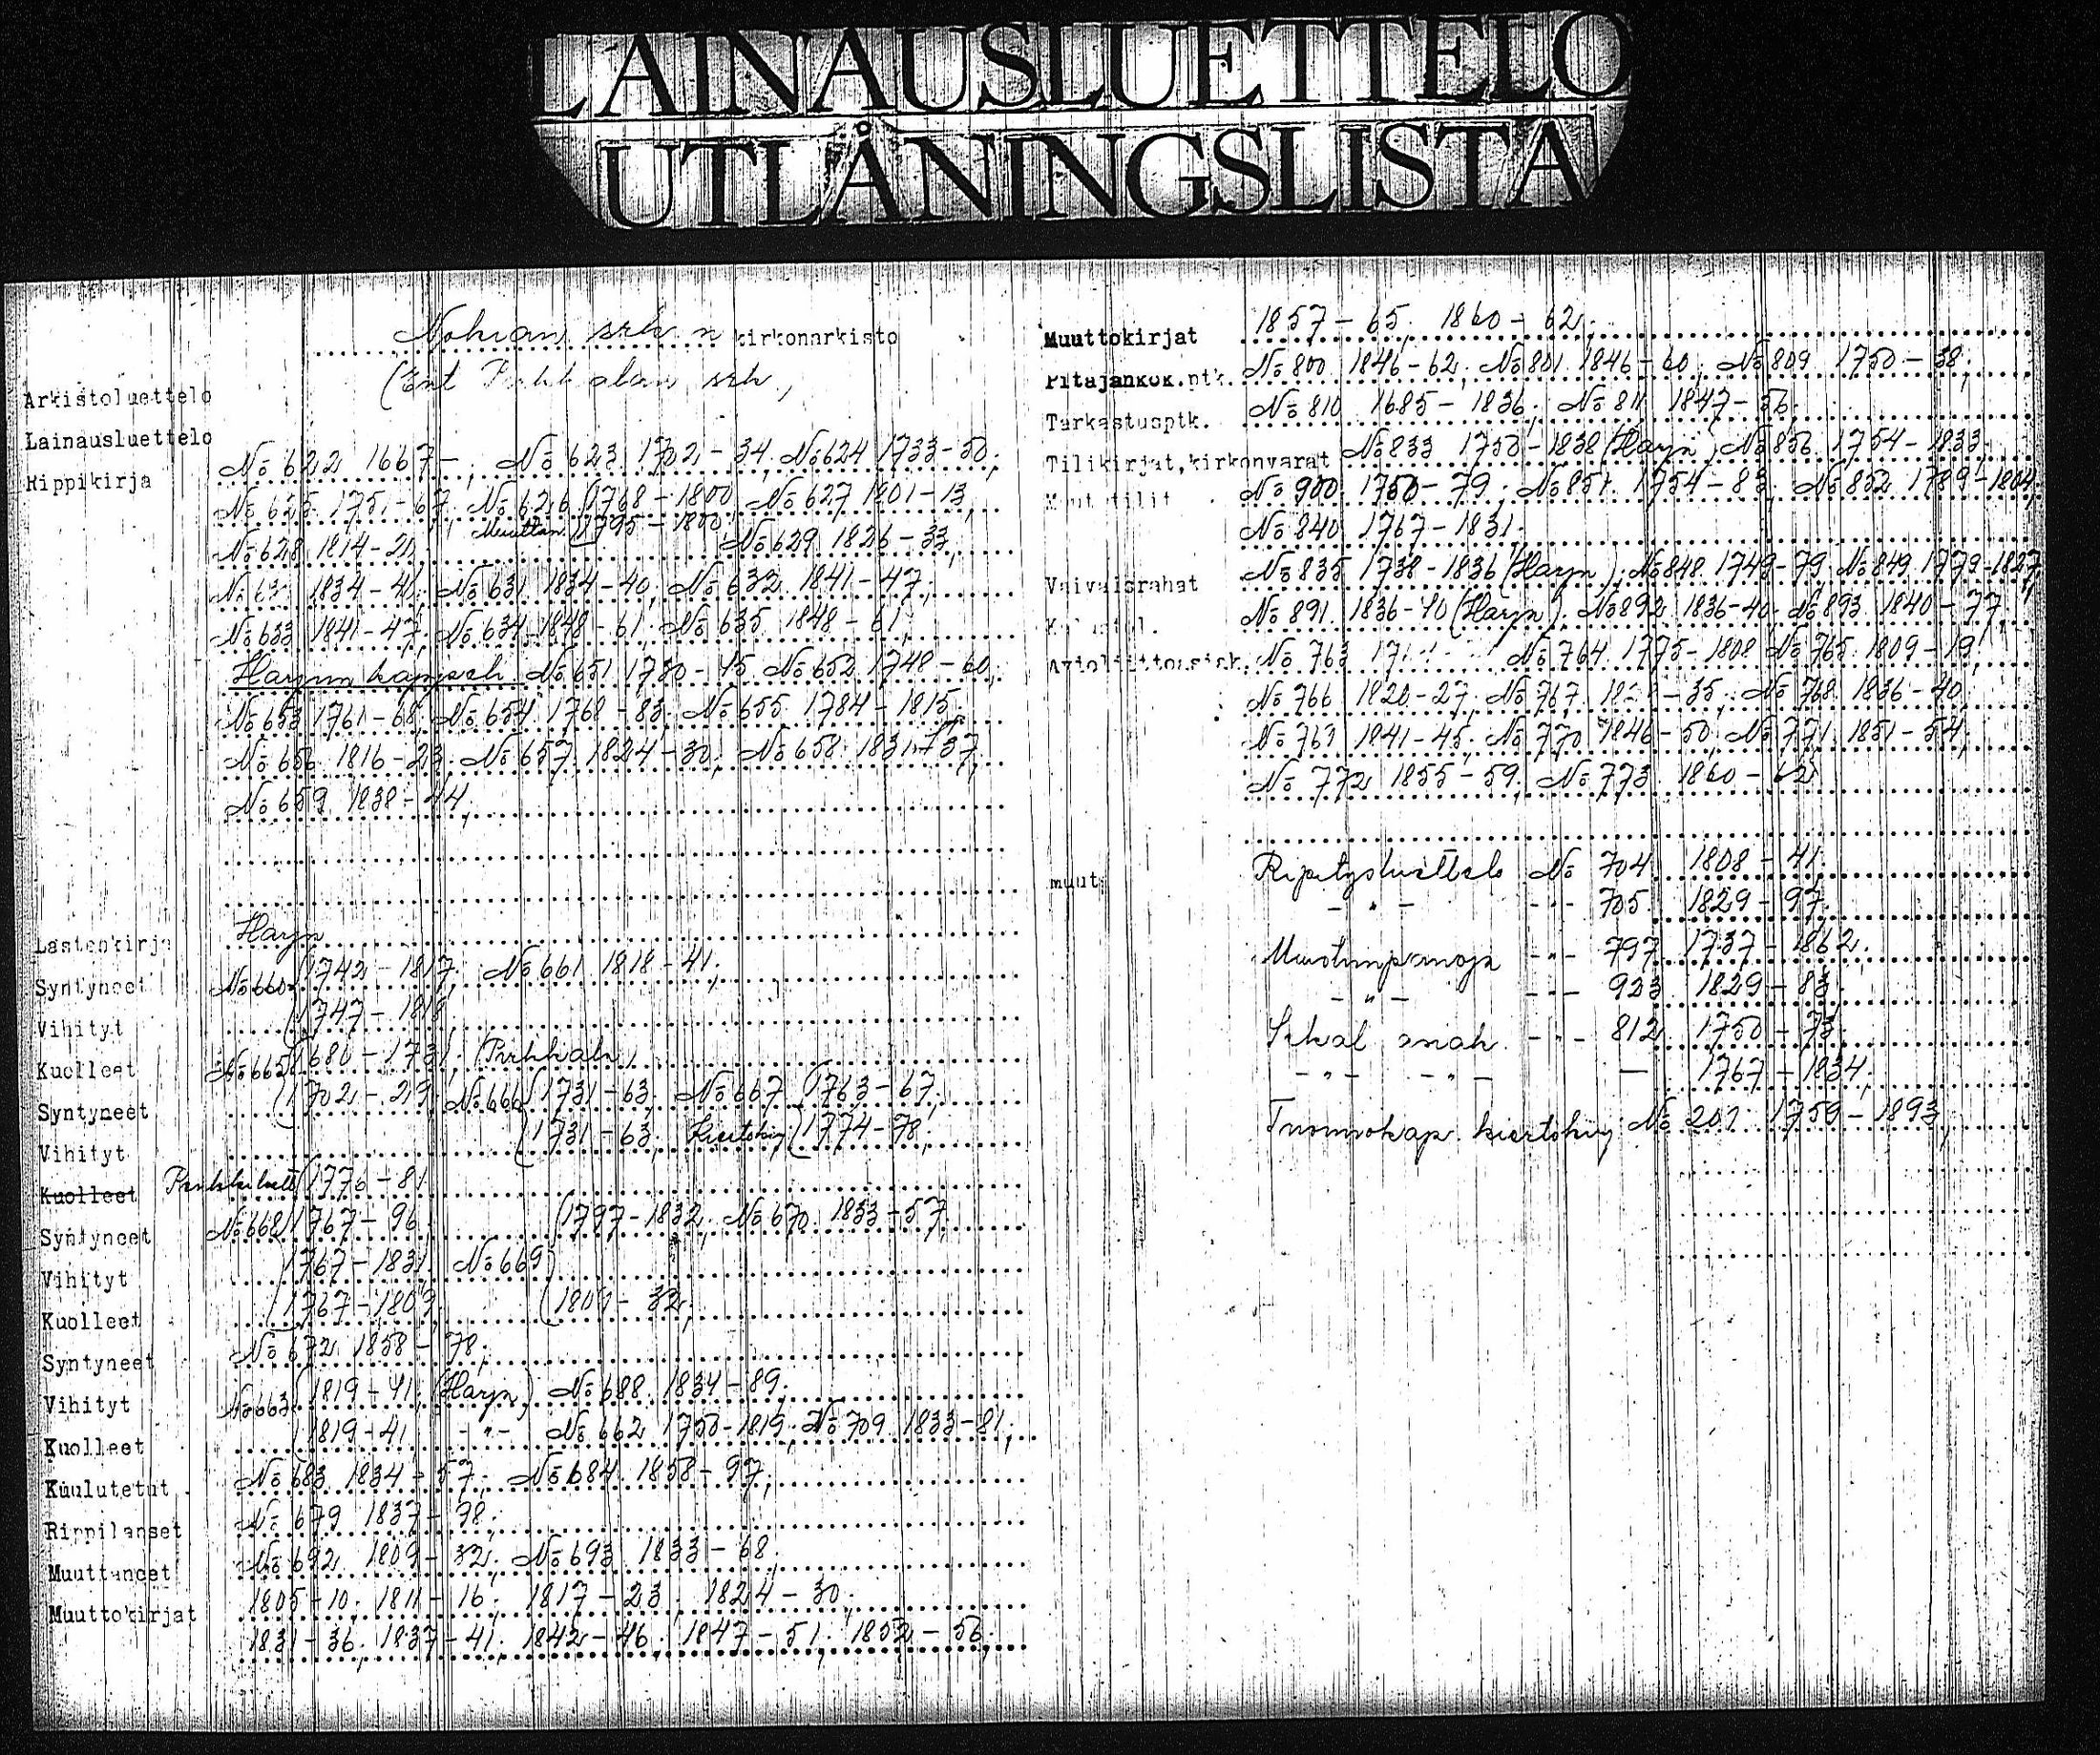 LAINAUSLUETTELO
UTLÅNINGSLISTA
Nokian srk n kirkonarkisto
(Ent Pirkkalan srk,
Arkistoluettelo
Lainausluettelo
Rippikirja No 622 1667-, No 623 1702-34, No 624 1733-50,
No 625 1751-67, No 626 (1768-1800, No 627 1801-13,
Muuttan. (1795-1800,
No 628 1814-21, No 629 1826-33,
1834-41, No 631 1834-40, No 632 1841-47,
No 633 1841-47, No 634 1848-61, No 635 1848-61,
Harjun kappseli No 651 No 652 1748-60,
No 653 1761-68, No 654 1768-83, No 655 1784-1815,
No 656 1816-23, No 657 1824-30, No 658 1831-37,
No 659 1838-44,
Lastenkirja Harjn
Syntyneet No 660 (1742-1817, No 661 1818-41,
Vihityt (1747-
Kuolleet No 665 (1680-1731, (Pirkkala,
Syntyneet (1702-29, No 666 (1731-63, No 667 (1763-67,
Vihityt (1731-63, Kiertokirj (1774-78,
Kuolleet (1776-81
Syntyneet No 668 (1767-96, (1797-1832, No 670 1833-57,
Vihityt 1767-1831, No 669
Kuolleet (1767-1809, (1809-32,
Syntyneet No 672 1858-78,
Vihityt No 663 (1819-41, (Harjn) No 688 1834-89,
Kuolleet (1819-41 -"- No 662 1750-1819, No 709 1833-81,
Kuulutetut No 683 1834-57, No 684 1858-97,
Rippilapset No 679 1837-78,
Muuttaneet No 692 1809-32, No 693 1833-68,
Muuttokirjat 1805-10, 1811-16, 1817-23, 1824-30,
1831-36, 1837-41, 1842-46, 1847-51, 1852-56,
Muuttokirjat 1857-65, 1860-62,
Pitäjänkok.ptk. No 800 1846-62, No 801 1846-60, No 809 1750-38,
Tarkastusptk. No 810 1685-1836, No 811 1847-56,
Tilikirjat, kirkonvarat No 833 1750-1838 (Harjn), No 836 1754-1833
Muut tilit No 900 1750-79, No 851 1754-83, No 852 1789-1804,
No 840 1767-1831,
Vaivaisrahat No 835 1738-1836 (Harjn), No 848 1749-79, No 849 1779-1827,
No 891 1836-40 (Harjn), No 892 1836-40, No 893 1840-77,
Avioliittoasiak. No 763 No 764 1775-1808 No 765 1809-19,
No 766 1820-27, No 767 -35, No 768 1836-40,
1841-45, No 770 1846-50, No 771 1851-54,
No 772 1855-59, No 773 1860-62
muut Ripitysluettelo No 704 1808-41,
-"- -"- 705 1829-97
-"- 797 1737-1862,
-"- -"- 923 1829-83,
Sekal asiak. -"- 812 1750-75,
-"- -"- — 1767-1834,
Tuomiokap. kiertokirj No 201 1759-1893,